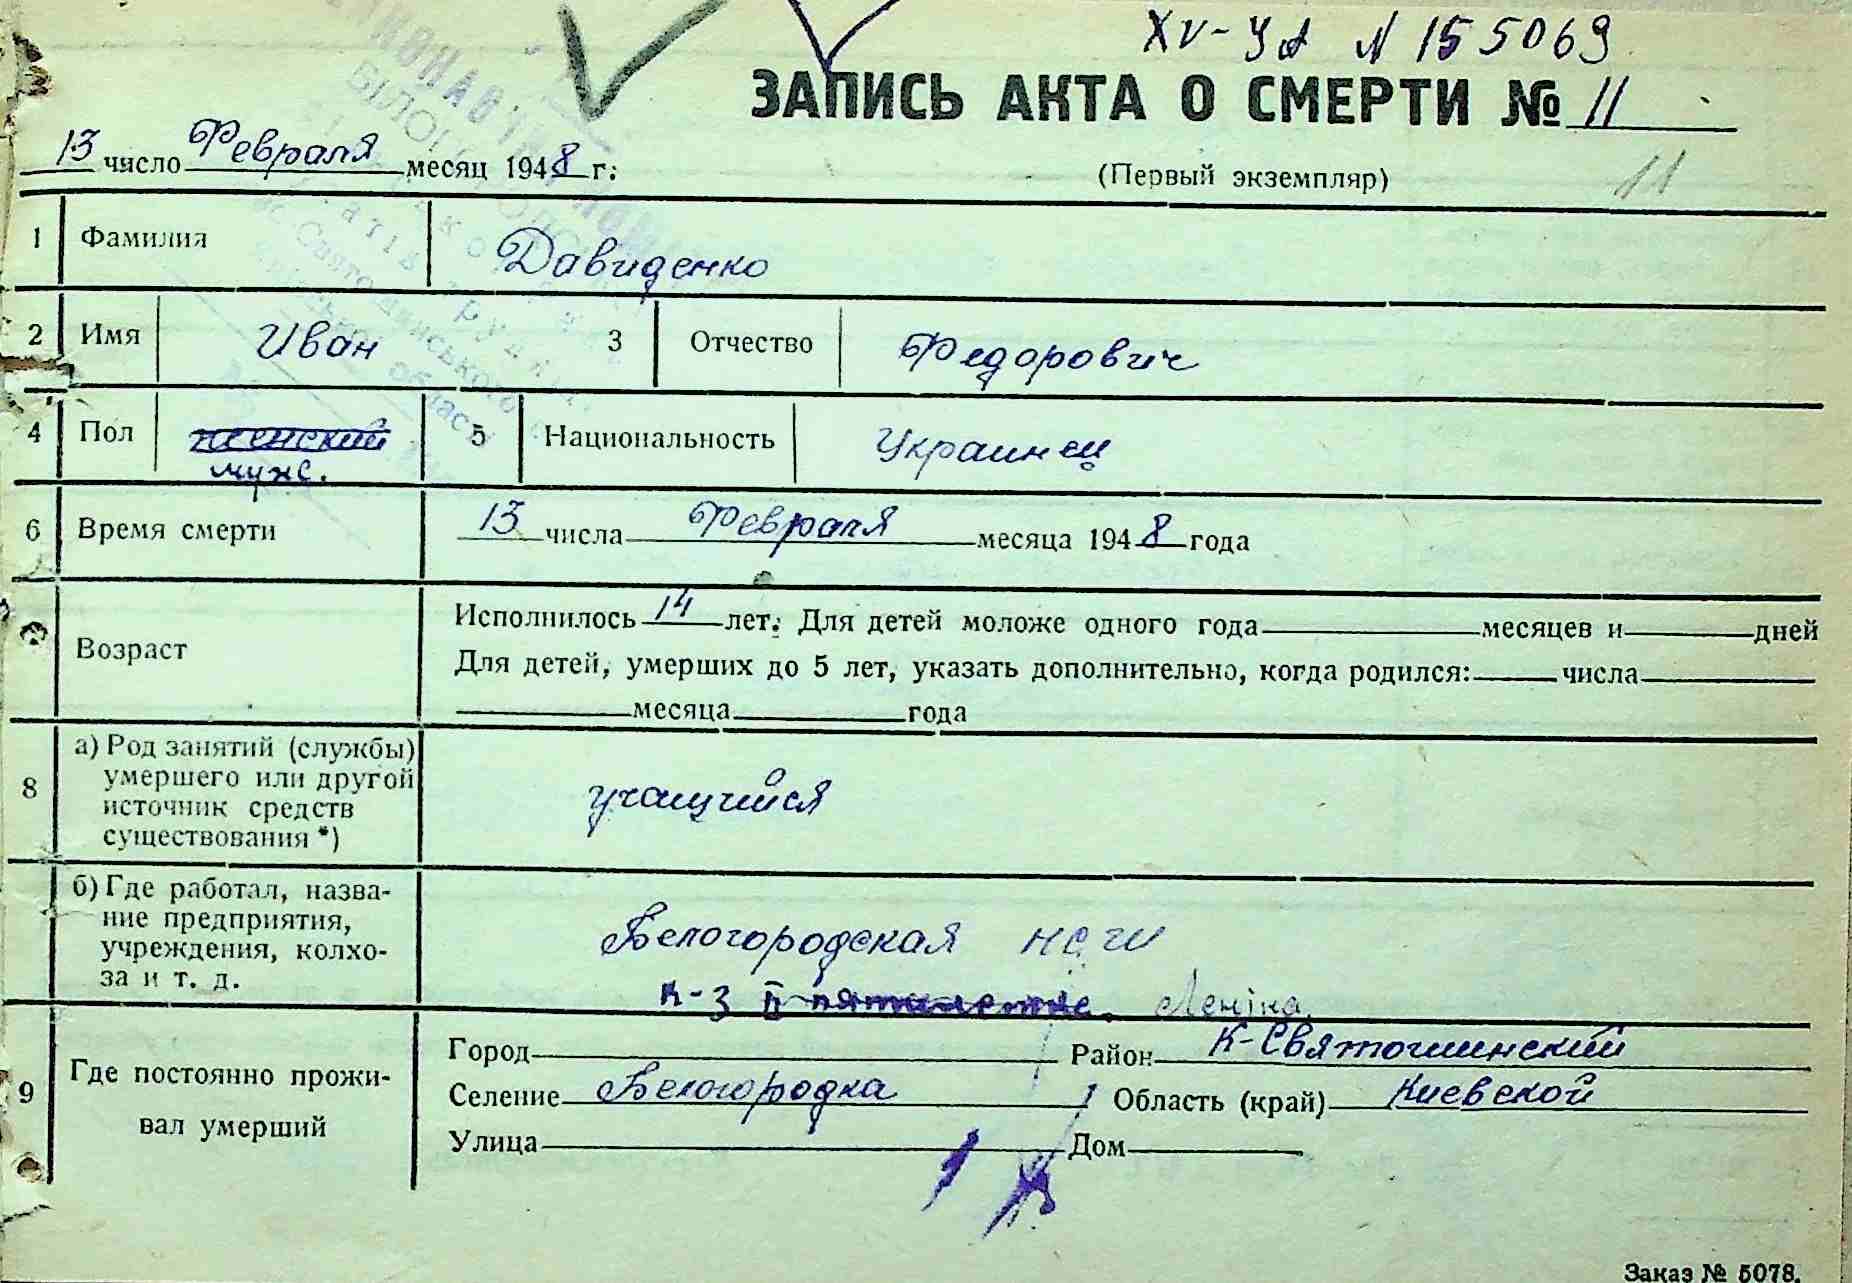 XV-УА N 155069
ЗАПИСЬ АКТА О СМЕРТИ № 11
13 число Февраля месяц 1948 г.
(Первый экземпляр)
11
1 Фамилия Давиденко
2 Имя Иван 3 Отчество Федорович
4 Пол женский 5 Национальность Украинец
муж.
6 Время смерти 13 числа Февраля месяца 1948 года
Возраст
Исполнилось 14 лет. Для детей моложе одного года месяцев и дней
Для детей, умерших до 5 лет, указать дополнительно, когда родился: числа
месяца года
8 а) Род занятий (службы)
умершего или другой
источник средств
существования *)
учащийся
б) Где работал, назва-
ние предприятия,
учреждения, колхо-
за и т. д.
Белогородская
к-з II пятилетка. Леніна.
9 Где постоянно прожи-
вал умерший
Город Район К-Святошинский
Селение Белогородка Область (край) Киевской
Улица Дом
Заказ № 5078.